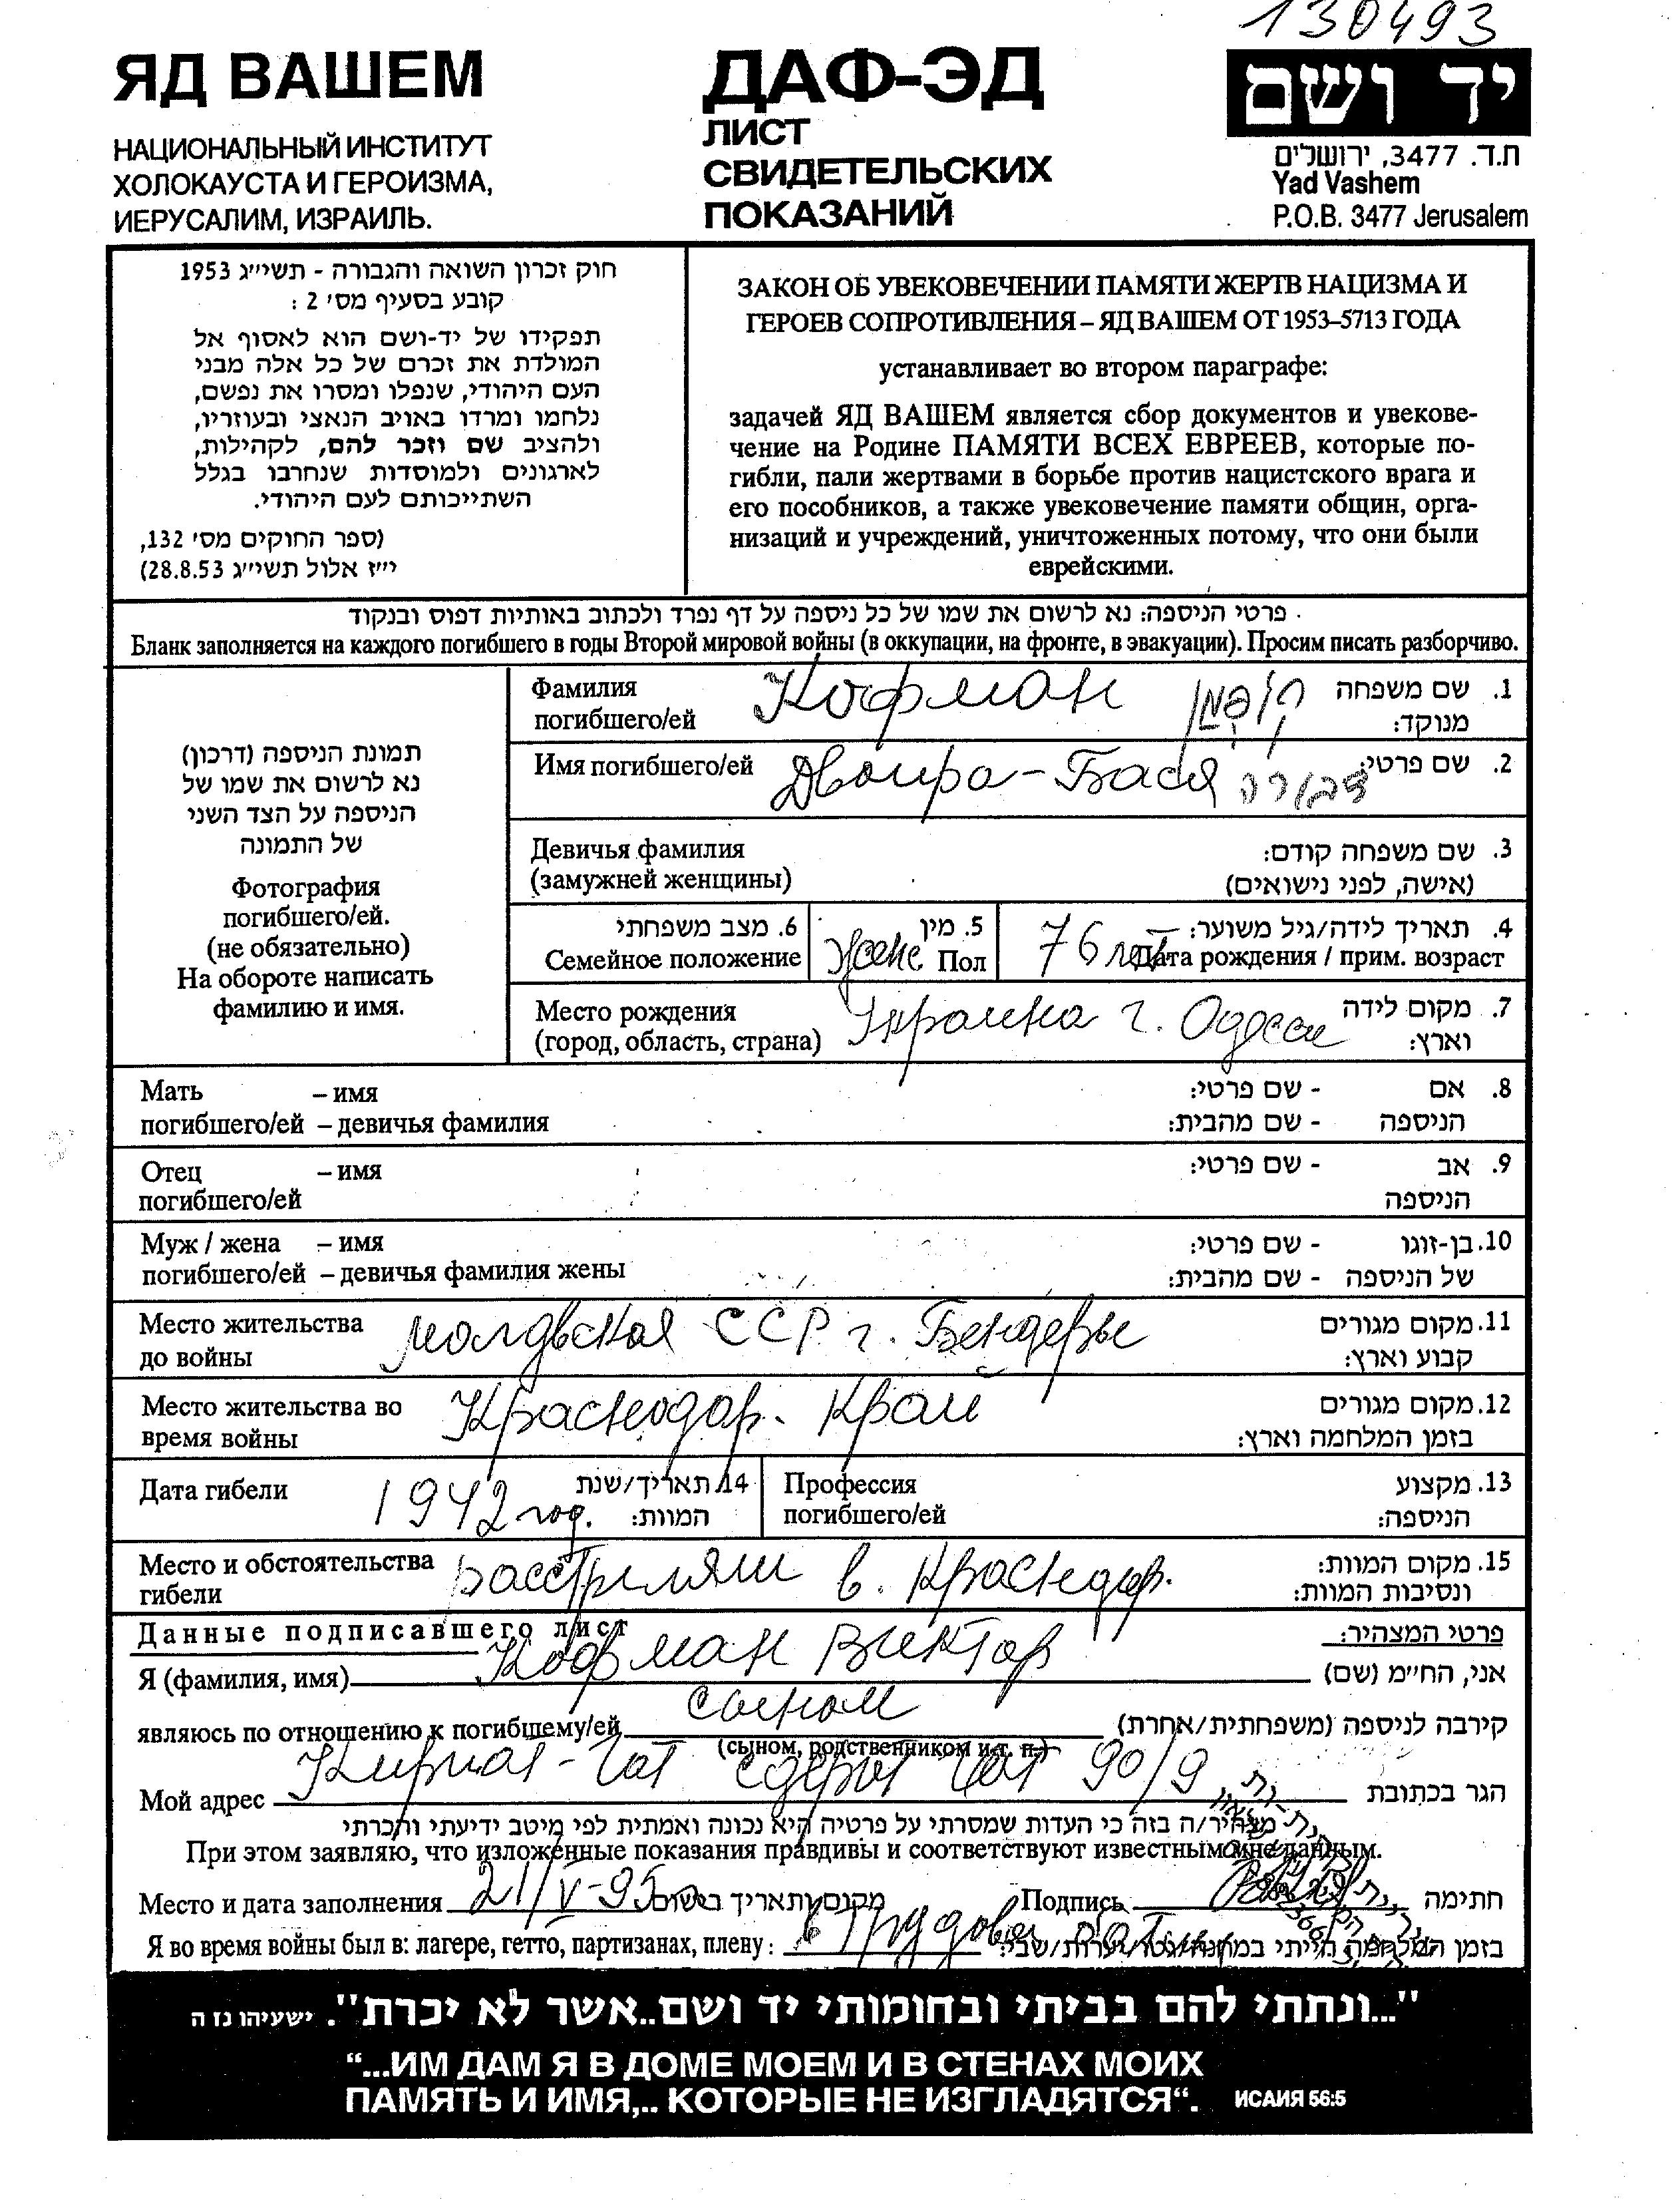 130493
ЯД ВАШЕМ
НАЦИОНАЛЬНЫЙ ИНСТИТУТ
ХОЛОКАУСТА И ГЕРОИЗМА,
ИЕРУСАЛИМ, ИЗРАИЛЬ.
ДАФ-ЭД
ЛИСТ
СВИДЕТЕЛЬСКИХ
ПОКАЗАНИЙ
יד ושם
ת.ד. 3477, ירושלים
Yad Vashem
P.O.B. 3477 Jerusalem
חוק זכרון השואה והגבורה - תשי״ג 1953
קובע בסעיף מס׳ 2 :
תפקידו של יד-ושם הוא לאסוף אל
המולדת את זכרם של כל אלה מבני
העם היהודי, שנפלו ומסרו את נפשם,
נלחמו ומרדו באויב הנאצי ובעוזריו,
ולהציב שם וזכר להם, לקהילות,
לארגונים ולמוסדות שנחרבו בגלל
השתייכותם לעם היהודי.
(ספר החוקים מס׳ 132,
י״ז אלול תשי״ג 28.8.53)
ЗАКОН ОБ УВЕКОВЕЧЕНИИ ПАМЯТИ ЖЕРТВ НАЦИЗМА И
ГЕРОЕВ СОПРОТИВЛЕНИЯ – ЯД ВАШЕМ ОТ 1953–5713 ГОДА
устанавливает во втором параграфе:
задачей ЯД ВАШЕМ является сбор документов и увекове-
чение на Родине ПАМЯТИ ВСЕХ ЕВРЕЕВ, которые по-
гибли, пали жертвами в борьбе против нацистского врага и
его пособников, а также увековечение памяти общин, орга-
низаций и учреждений, уничтоженных потому, что они были
еврейскими.
פרטי הניספה: נא לרשום את שמו של כל ניספה על דף נפרד ולכתוב באותיות דפוס ובנקוד
Бланк заполняется на каждого погибшего в годы Второй мировой войны (в оккупации, на фронте, в эвакуации). Просим писать разборчиво.
תמונת הניספה (דרכון)
נא לרשום את שמו של
הניספה על הצד השני
של התמונה
Фотография
погибшего/ей.
(не обязательно)
На обороте написать
фамилию и имя.
Фамилия Кофман קופמן 1. שם משפחה
погибшего/ей מנוקד:
Имя погибшего/ей Двойра-Бася דבורה 2. שם פרטי:
Девичья фамилия 3. שם משפחה קודם:
(замужней женщины) (אישה, לפני נישואים)
6. מצב משפחתי 5. מין 4. תאריך לידה/גיל משוער:
Семейное положение женс Пол 76 лет Дата рождения / прим. возраст
Место рождения Украина г. Одесса 7. מקום לידה
(город, область, страна) וארץ:
Мать – имя 8. אם - שם פרטי:
погибшего/ей – девичья фамилия הניספה - שם מהבית:
Отец – имя 9. אב - שם פרטי:
погибшего/ей הניספה
Муж / жена – имя 10. בן-זוגו - שם פרטי:
погибшего/ей – девичья фамилия жены של הניספה - שם מהבית:
Место жительства Молдвская ССР г. Бендеры 11. מקום מגורים
до войны קבוע וארץ:
Место жительства во Краснодар. Край 12. מקום מגורים
время войны בזמן המלחמה וארץ:
Дата гибели 1942 год. 14. תאריך/שנת
המוות:
Профессия 13. מקצוע
погибшего/ей הניספה:
Место и обстоятельства расстреляли в. Краснодар. 15. מקום המוות:
гибели ונסיבות המוות:
Данные подписавшего лист פרטי המצהיר:
Я (фамилия, имя) Кофман Виктор אני, החי״מ (שם)
являюсь по отношению к погибшему/ей сыном קירבה לניספה (משפחתית/אחרת)
(сыном, родственником и т. п.)
Мой адрес Кириат-Гат Сдерот Гат 90/9 הגר בכתובת
מצהיר/ה בזה כי העדות שמסרתי על פרטיה היא נכונה ואמתית לפי מיטב ידיעתי והכרתי
При этом заявляю, что изложенные показания правдивы и соответствуют известным мне данным.
Место и дата заполнения 21/V-95 מקום ותאריך ברשום Подпись חתימה
Я во время войны был в: лагере, гетто, партизанах, плену: в Трудовой בזמן המלחמה הייתי במחנה/גטו/יערות/שבי:
"...ונתתי להם בביתי ובחומותי יד ושם..אשר לא יכרת". ישעיהו נז ה
“...ИМ ДАМ Я В ДОМЕ МОЕМ И В СТЕНАХ МОИХ
ПАМЯТЬ И ИМЯ,.. КОТОРЫЕ НЕ ИЗГЛАДЯТСЯ“. ИСАИЯ 56:5